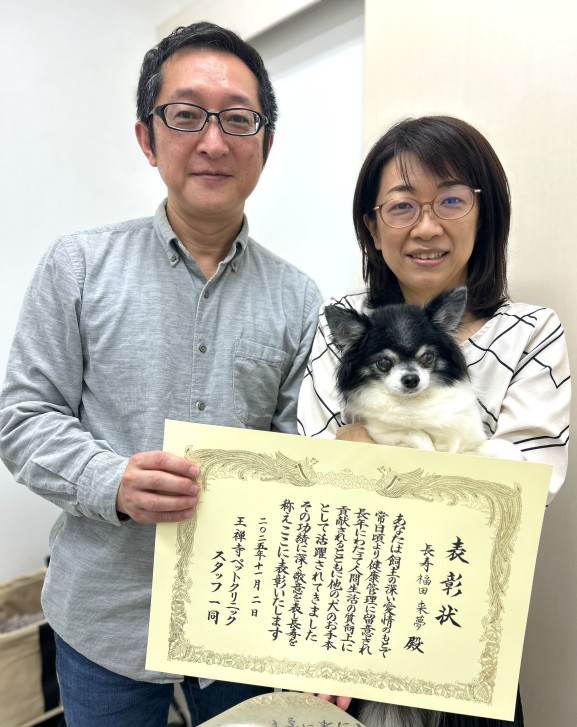 表彰状
長寿 福田 来夢 殿
あなたは飼主の深い愛情のもとで
常日頃より健康管理に留意され
長年にわたって人間生活の質向上に
貢献されるとともに他の犬のお手本
として活躍されてきました
その功績に深く敬意を表し長寿を
称えここに表彰いたします
二〇二五年十一月二日
王禅寺ペットクリニック
スタッフ一同